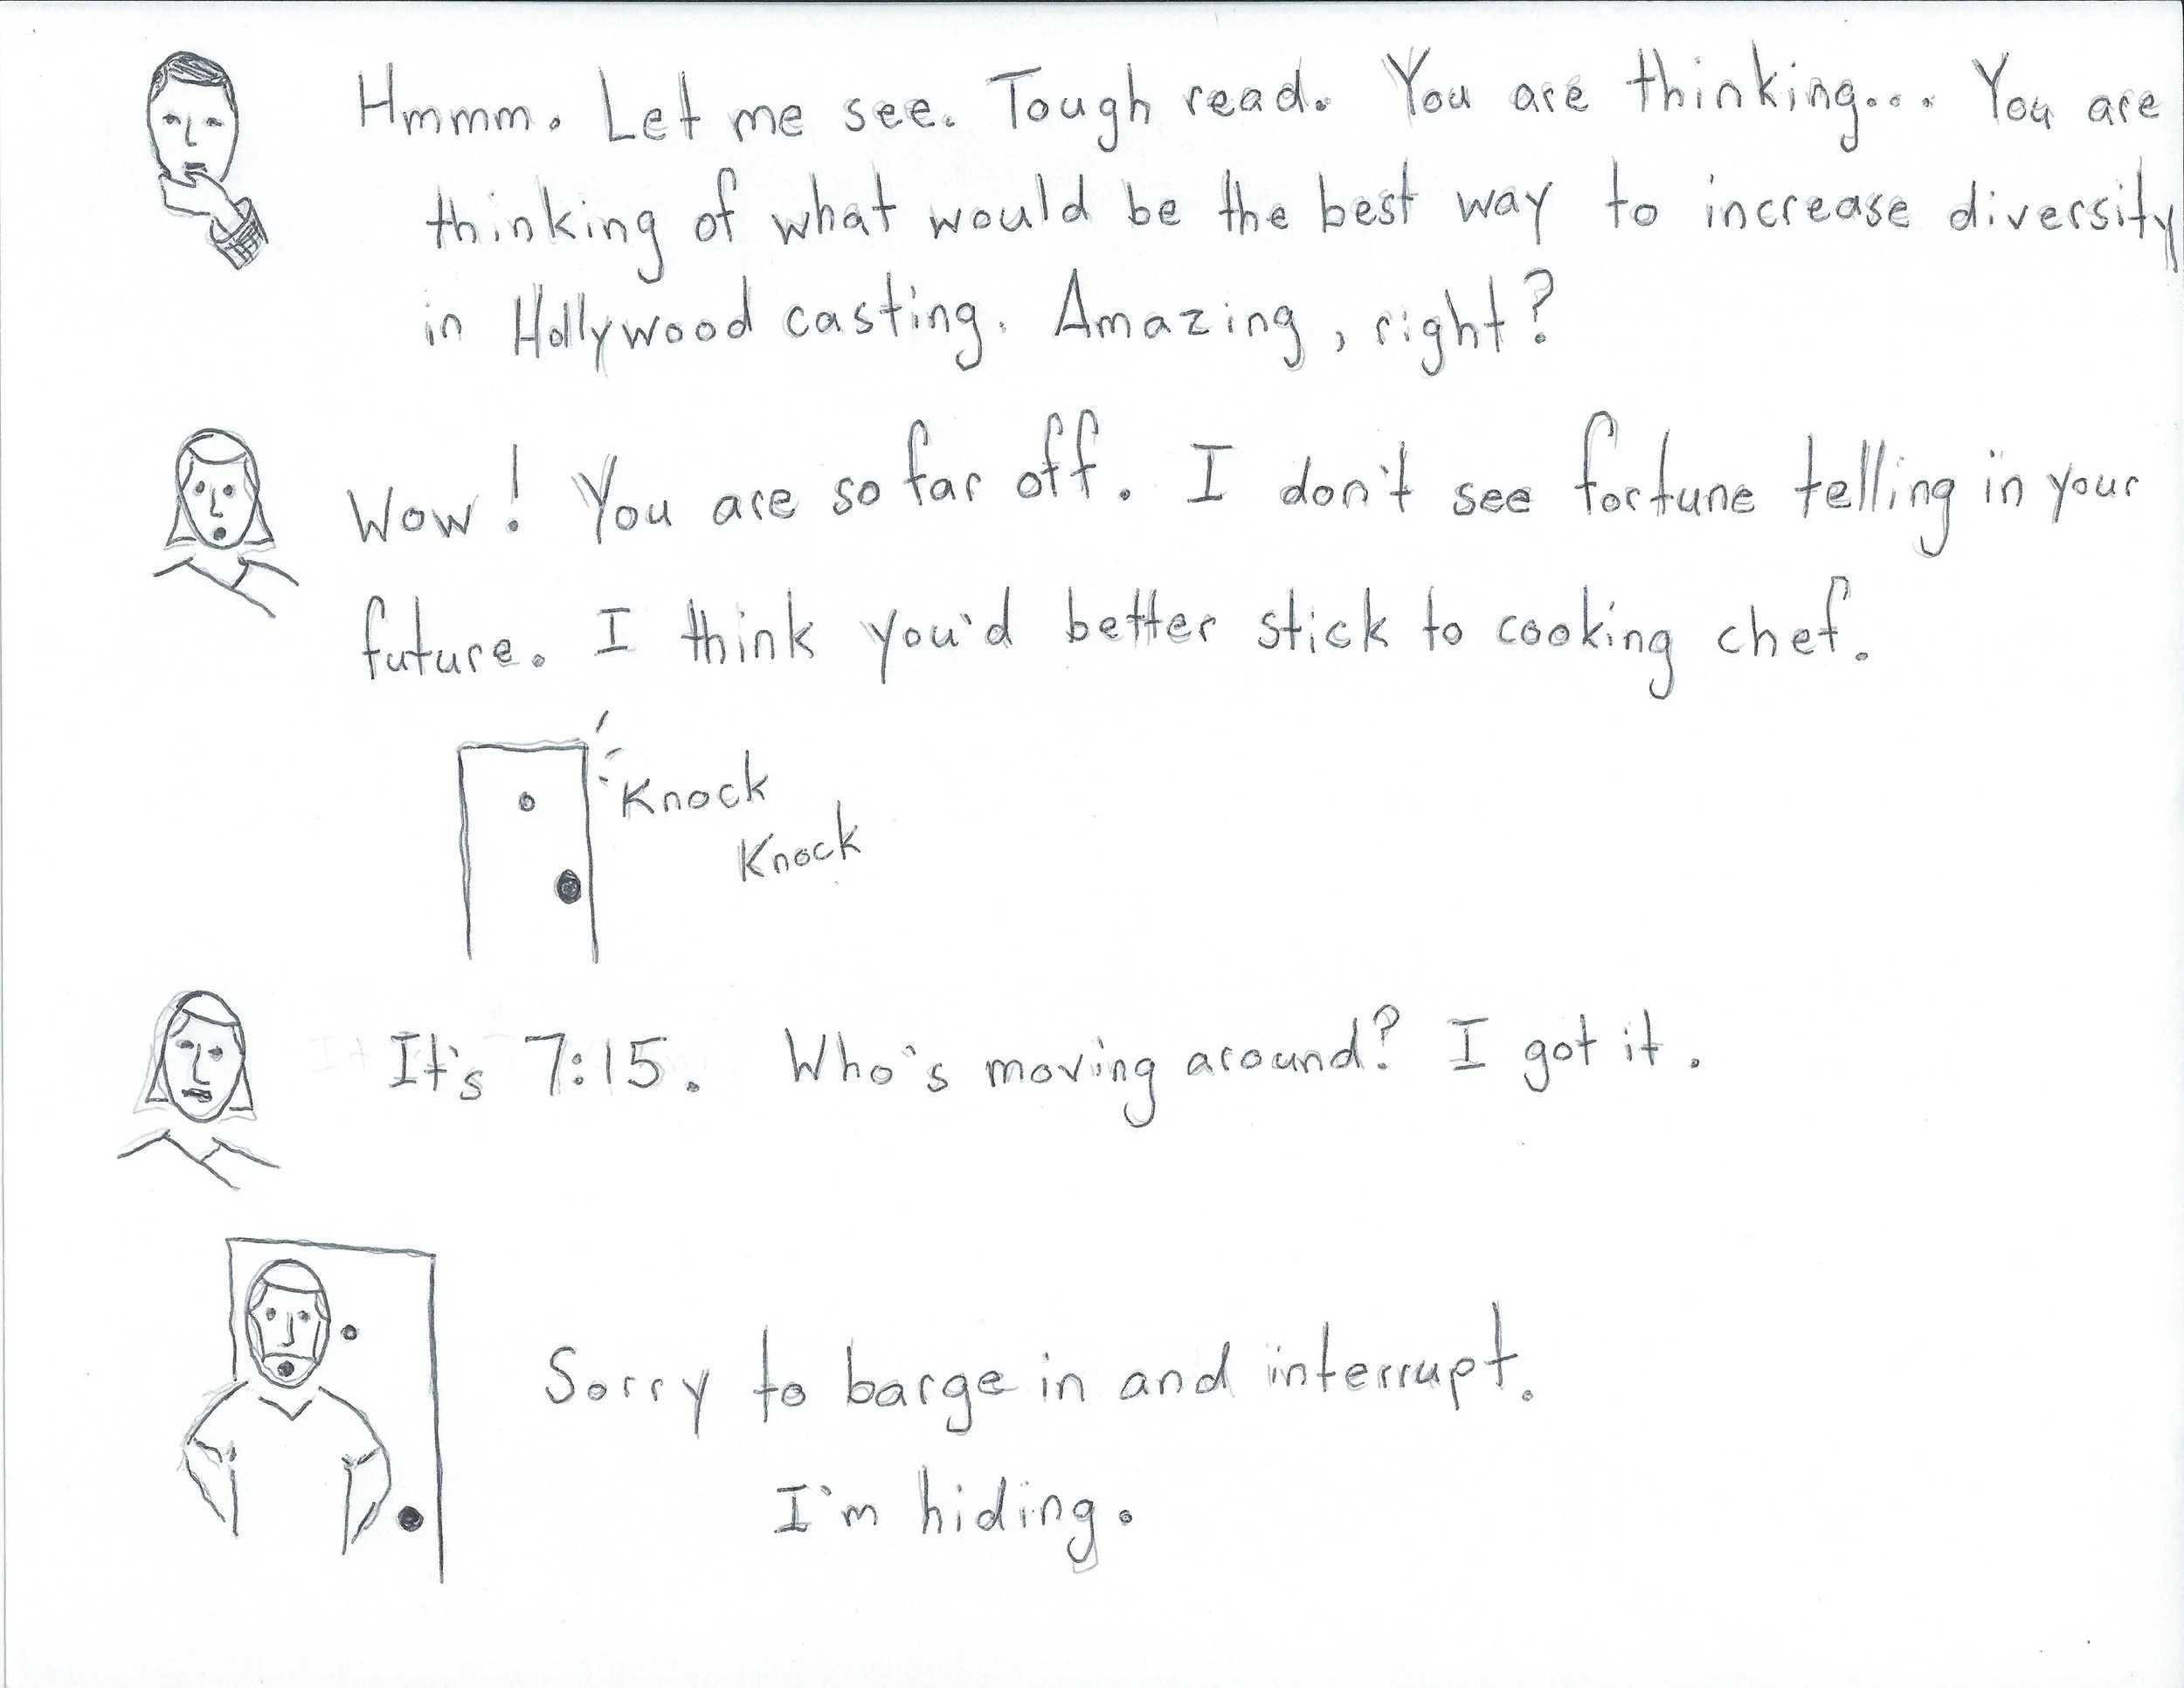 Hmmm. Let me see. Tough read. You are thinking... You are
thinking of what would be the best way to increase diversity
in Hollywood casting. Amazing, right?
Wow! You are so far off. I don't see fortune telling in your
future. I think you'd better stick to cooking chef.
Knock
Knock
It's 7:15. Who's moving around? I got it.
Sorry to barge in and interrupt.
I'm hiding.